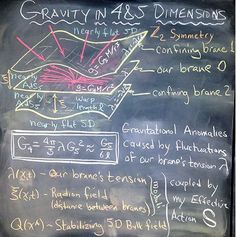 GRAVITY IN 4&5 DIMENSIONS
nearly flat 5D
Z₂ Symmetry
confining brane 1
our brane 0
confining brane 2
nearly AdS₅
nearly AdS₅
ξ
ξ
warp length ℓ
nearly flat 5D
G₄ = 4π/3 λG₅² ≈ G₅/6ℓ
Gravitational Anomalies
caused by fluctuations
of our brane's tension λ
λ(x,t) - Our brane's tension
ξ(x,t) - Radion field
(distance between branes)
Q(x⁴) - Stabilizing 5D Bulk field
coupled by
my Effective
Action S